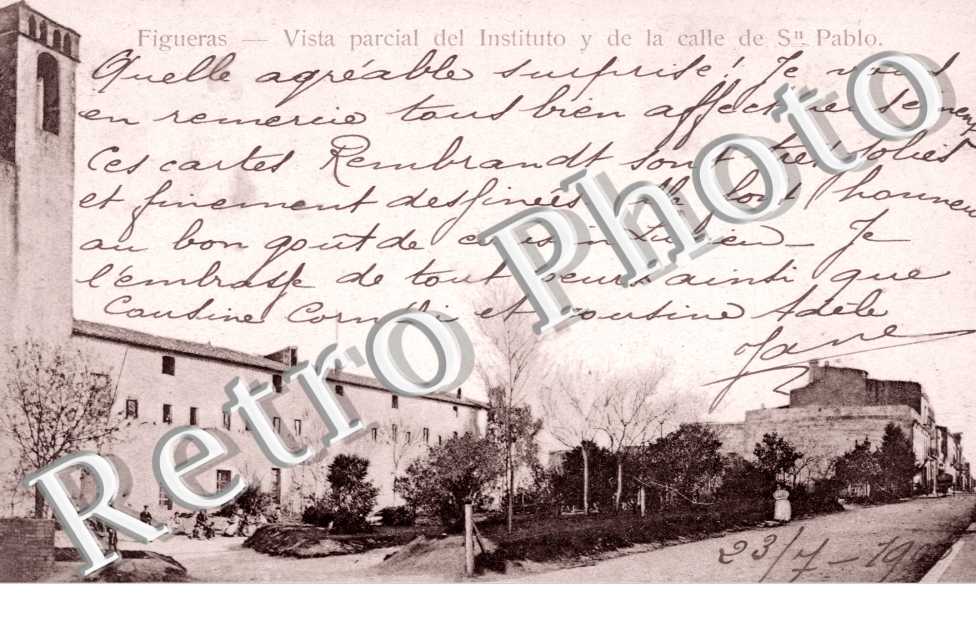 Figueras — Vista parcial del Instituto y de la calle de Sn. Pablo.
Quelle agréable surprise! Je vous
en remercie tous bien affectueusement
Ces cartes Rembrandt sont très jolies
et finement dessinées. Ils font honneur
au bon goût de Je
l'embrasse de tout ainsi que
Cousine et cousine Adèle
Jane
23/7 - 19
Retro Photo